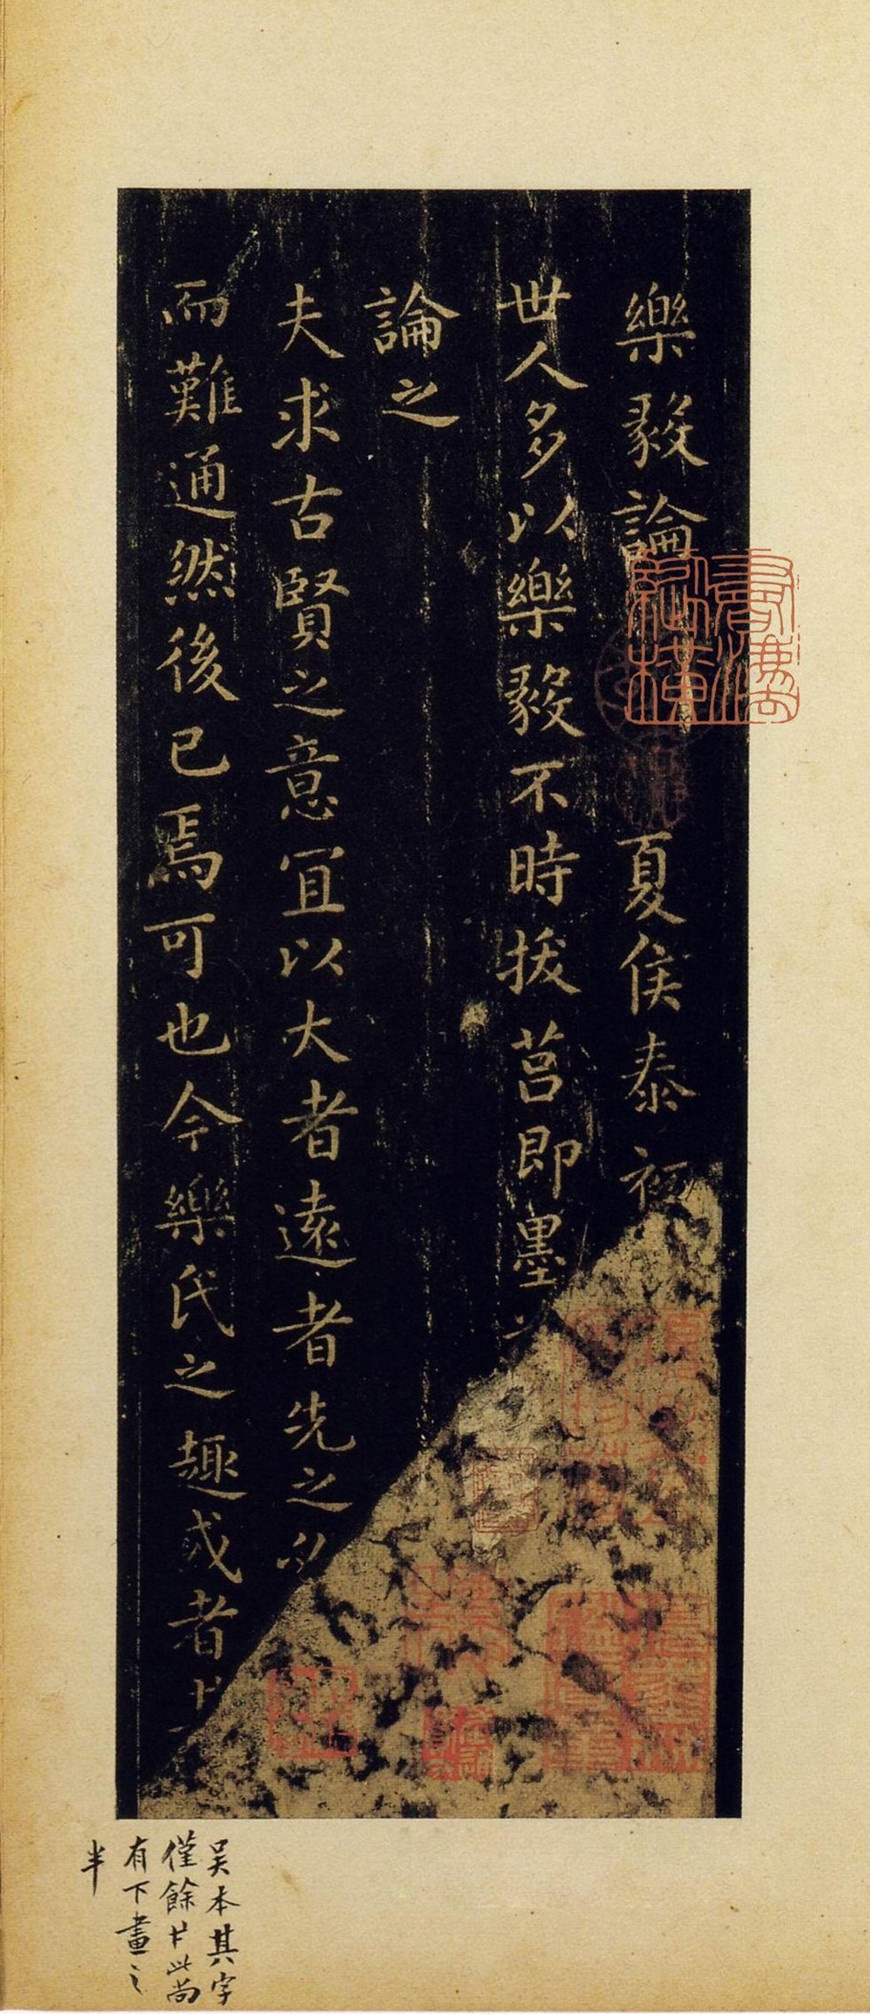 樂毅論
夏侯泰初
世人多以樂毅不時拔莒即墨
論之
夫求古賢之意宜以大者遠者先之必
而難通然後已焉可也今樂氏之趣或者
吴本其字
僅餘 此尚
有下畫之
半